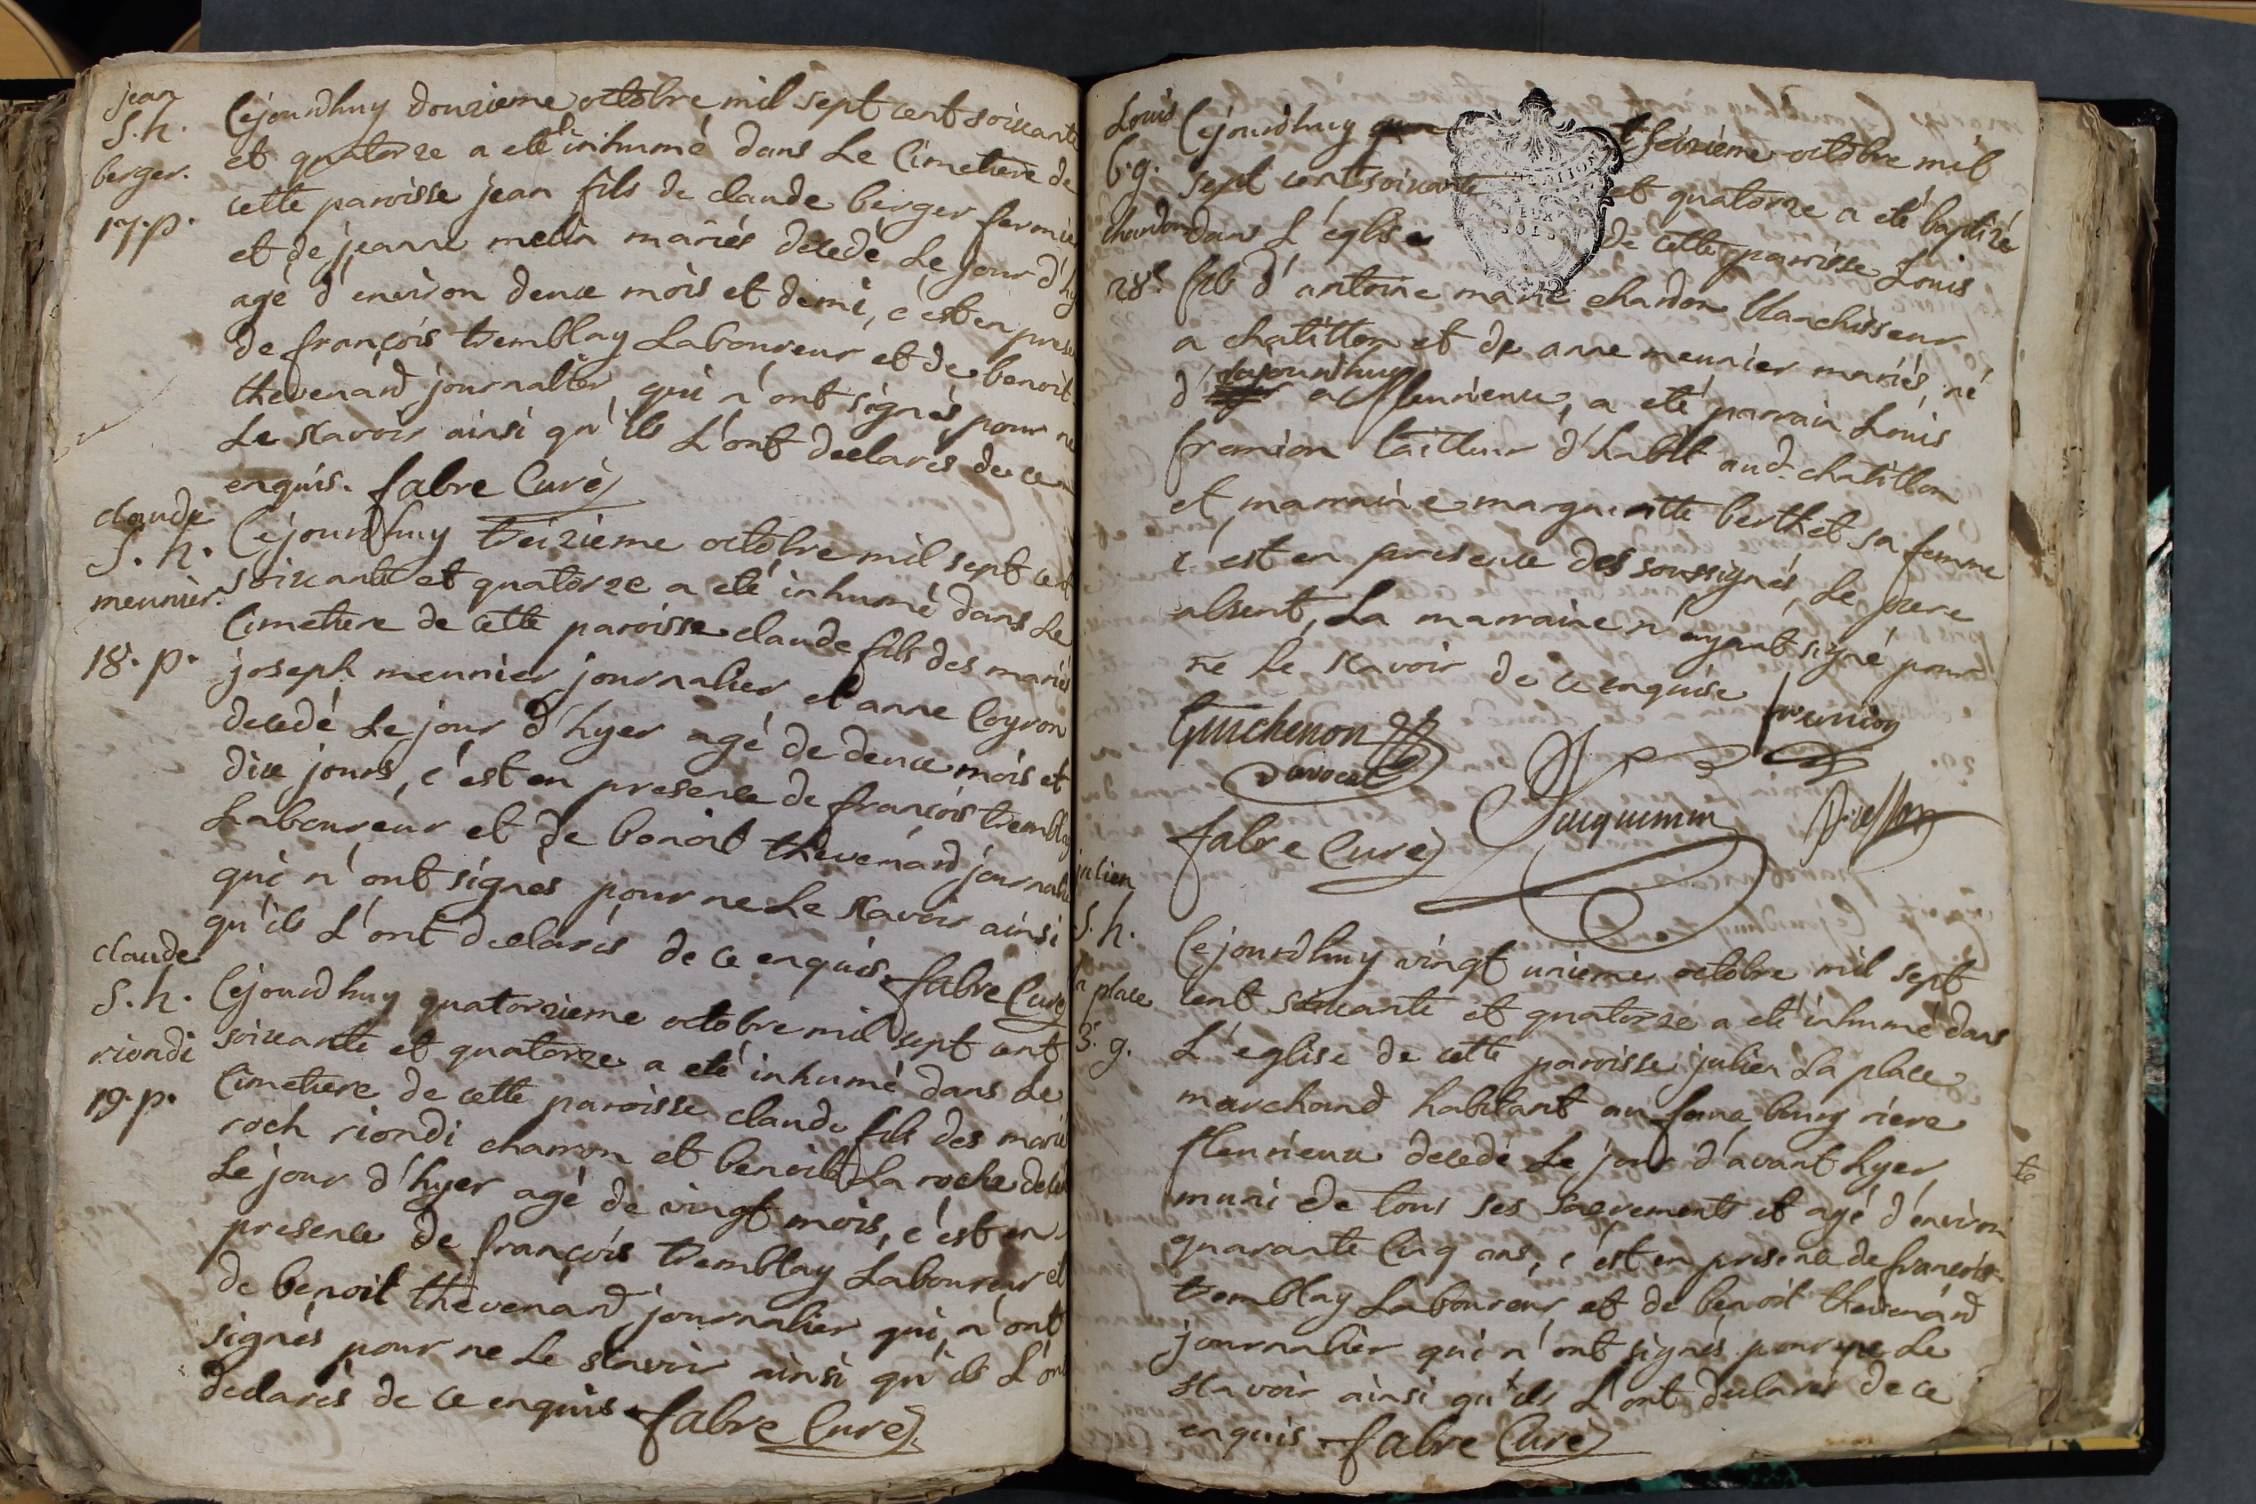 jean
S. h.
berger.
17. p.
Cejourdhuy douzieme octobre mil sept cent soixante
et quatorze a eté inhumé dans Le Cimetiere de
cette paroisse jean fils de claude berger fermie
et de jeanne melin mariés decedé Le jour d'hy
agé d'environ deux mois et demi, c'est en prese
de françois tremblay Laboureur et de benoit
thevenard journalier, qui n'ont signés, pour ne
Le sçavoir ainsi qu'ils L'ont declarés de ce
enquis. fabre Curé
claude
S. h.
meunier.
18. p.
Cejourdhuy treizieme octobre mil sept cent
soixante et quatorze a eté inhumé dans Le
Cimetiere de cette paroisse claude fils des mariés
joseph meunier journalier et anne Coyron
decedé Le jour d'hyer agé de deux mois et
dix jours, c'est en presence de françois tremblay
Laboureur et de benoit thevenard journalie
qui n'ont signés pour ne Le sçavoir ainsi
qu'ils L'ont declarés de ce enquis. fabre Curé
claude
S. h.
riondi
19. p.
Cejourdhuy quatorzieme octobre mil sept cent
soixante et quatorze a eté inhumé dans Le
Cimetiere de cette paroisse claude fils des mariés
roch riondi charron et benoite La roche deced
Le jour d'hyer agé de vingt mois, c'est en
presence de françois tremblay Laboureur et
de benoit thevenard journalier qui n'ont
signés pour ne Le sçavoir ainsi qu'ils L'ont
declarés de ce enquis. fabre Curé
Louis
b. g.
chardon
28.
Cejourdhuy seizieme octobre mil
sept cent soixante et quatorze a eté baptizé
dans L'eglise de cette paroisse Louis
fils d'antoine marie chardon blanchisseur
a chatillon et de anne meunier mariés, né
d'aujourdhuy a fleurieux, a eté parrain Louis
fremion tailleur d'habit aud. chatillon
et marraine margueritte berthet sa femme
c'est en presence des soussignés, Le pere
absent, La marraine n'ayant signé pour
ne Le sçavoir de ce enquise fremion
Guichenon
avocat
Jacquemin
fabre Curé
julien
S. h.
la place
3. g.
Cejourdhuy vingt unieme octobre mil sept
cent soixante et quatorze a eté inhumé dans
L'eglise de cette paroisse julien La place
marchand habitant au faux bourg riere
fleurieux decedé Le jour d'avant hyer,
muni de tous ses sacrements et agé d'environ
quarante Cinq ans, c'est en presence de françois
tremblay Laboureur, et de benoit thevenard
journalier qui n'ont signés pour ne Le
sçavoir ainsi qu'ils L'ont declarés de ce
enquis. fabre Curé